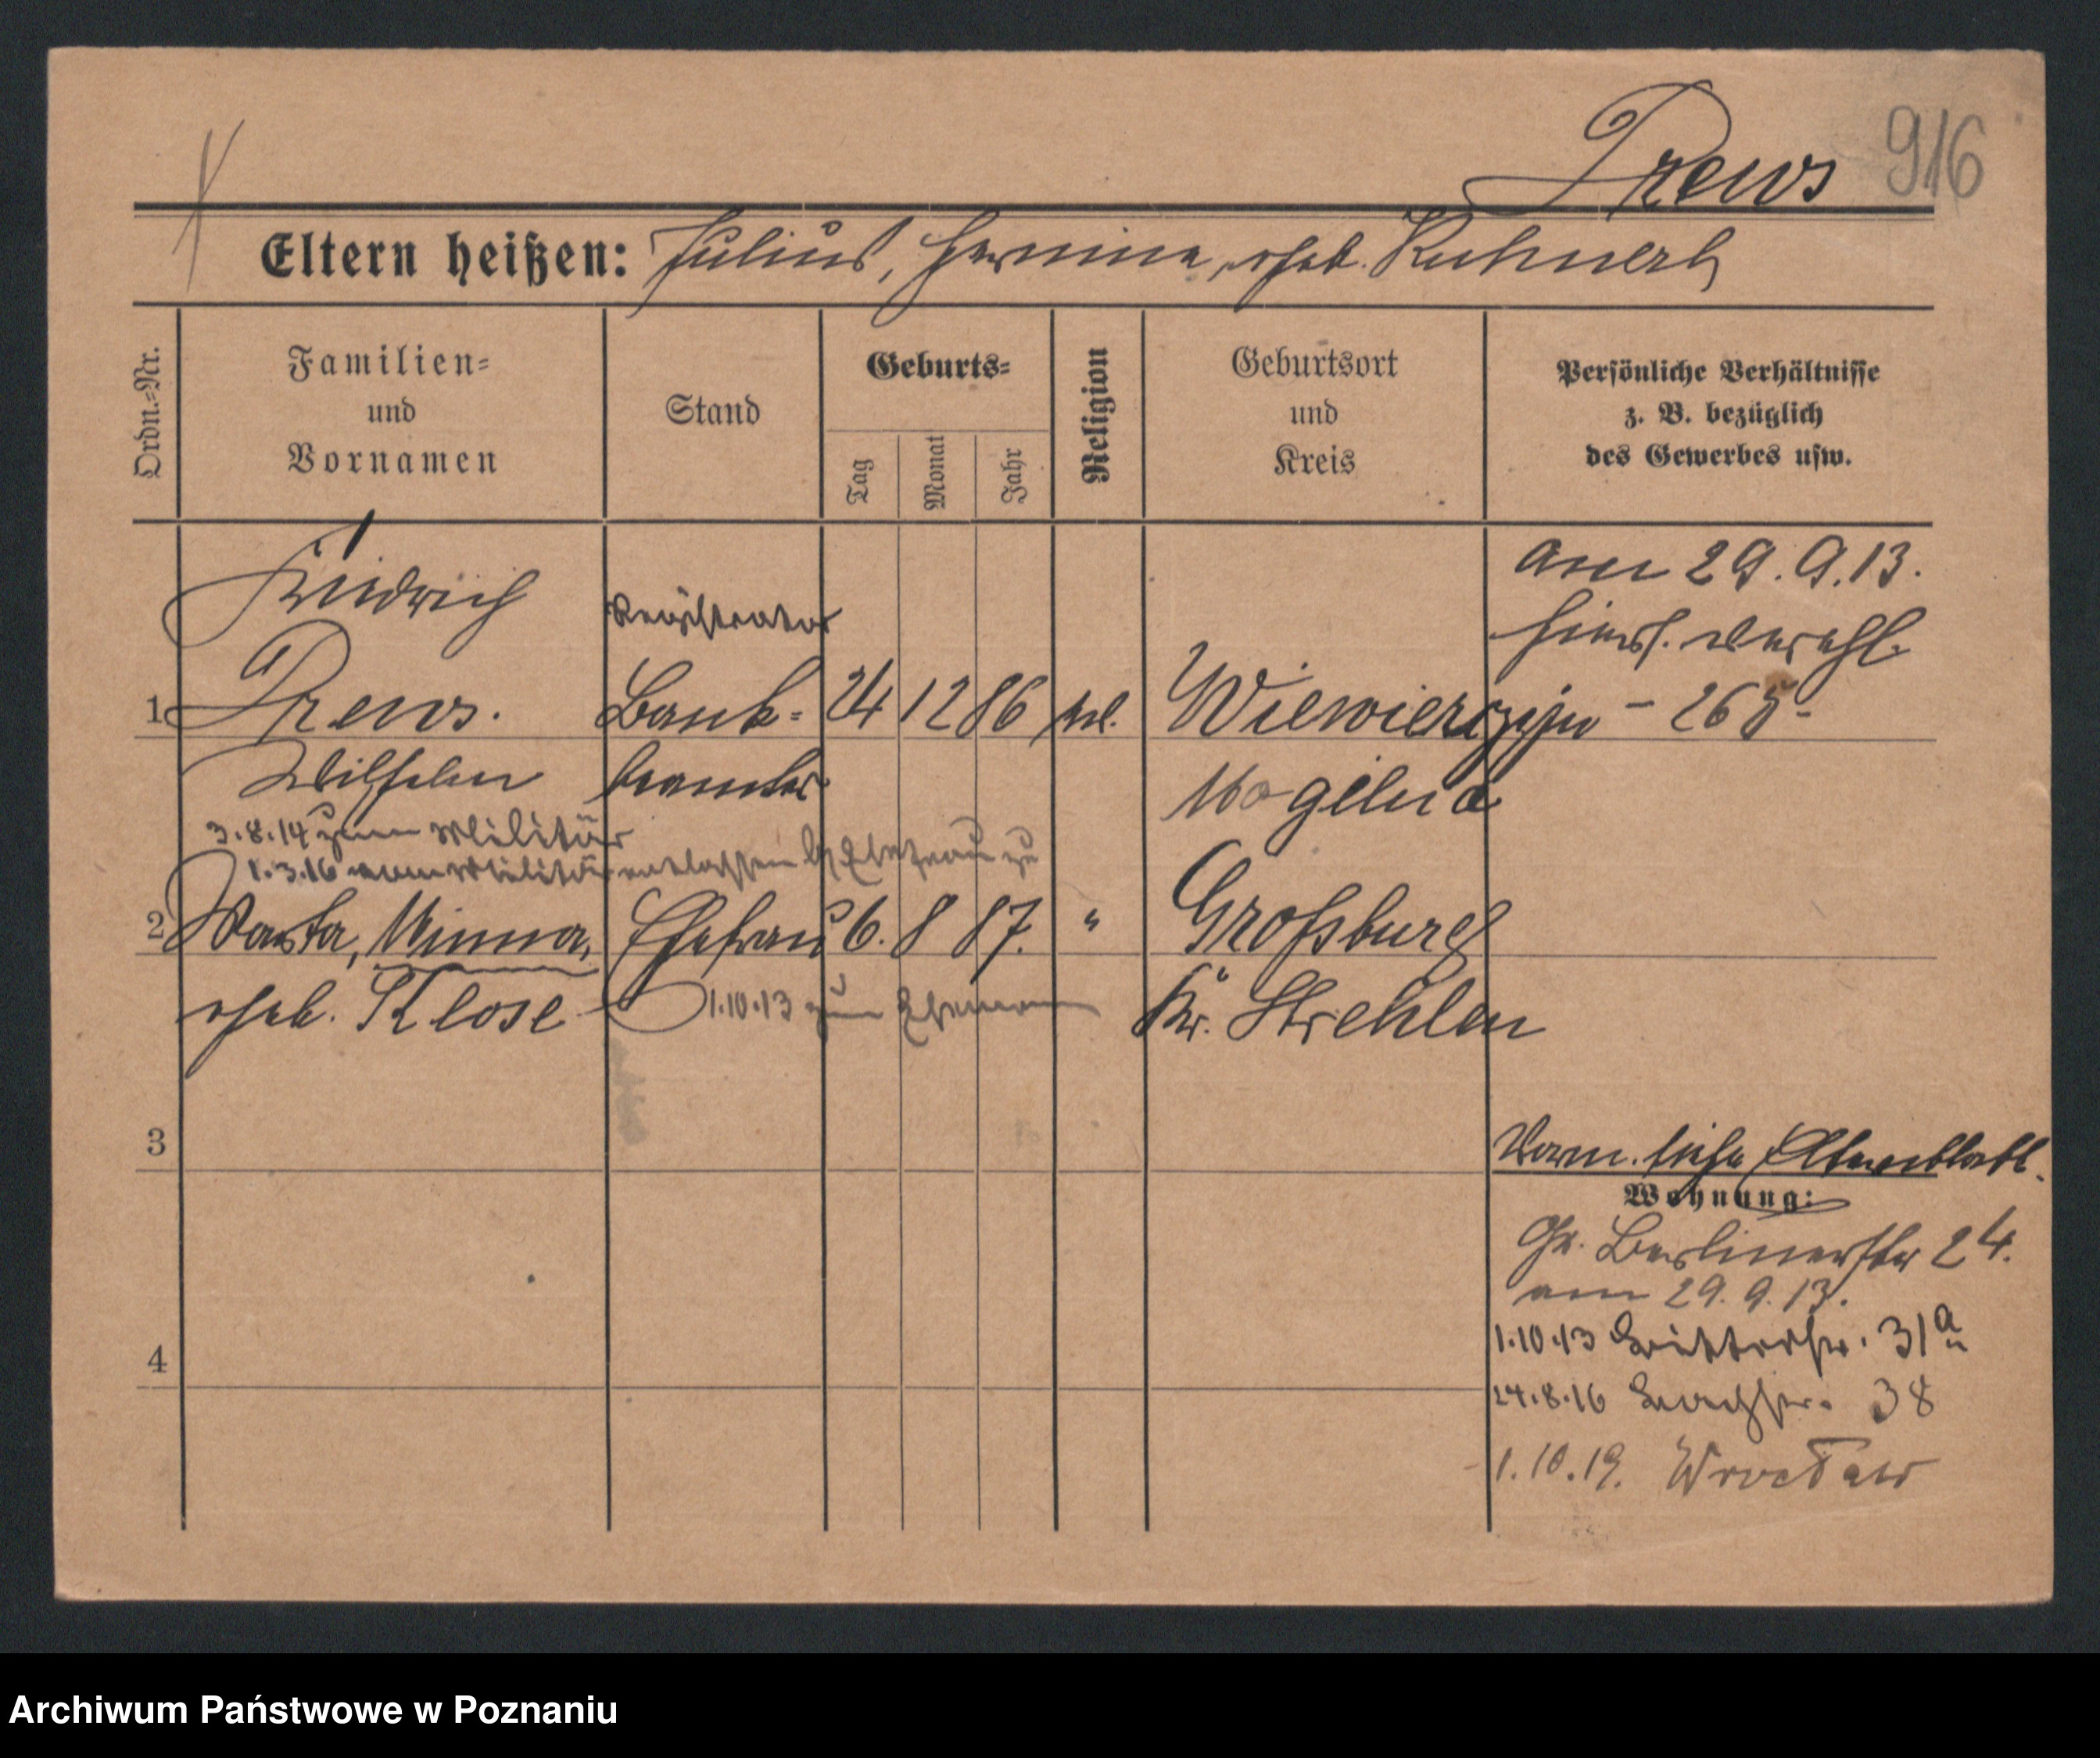 Prews 916
Eltern heißen: Julius, Hermine, geb. Kuhnert
Ordn.-Nr.
Familien-
und
Vornamen
Stand
Geburts-
Tag
Monat
Jahr
Religion
Geburtsort
und
Kreis
Persönliche Verhältnisse
z. B. bezüglich
des Gewerbes usw.
am 29.9.13.
hiers. verehl.
Friedrich
Registrator
1 Prews. Bank- 24 12 86 Wiewierzyn - 265-
Wilhelm beamter Mogilno
3.8.14 zum Militär
1.3.16 vom Militär entlassen Ehefrau zu
2 Martha, Minna, Ehefrau 6. 8 87. " Großburg
geb. Klose 1.10.13 zum Ehemann Kr. Strehlen
3
Vorm. siehe Elternblatt.
Wohnung:
Gr. Berlinerstr 24.
am 29.9.13.
1.10.13 Ritterstr. 31a
4
24.8.16 38
1.10.19. Wrocław
Archiwum Państwowe w Poznaniu